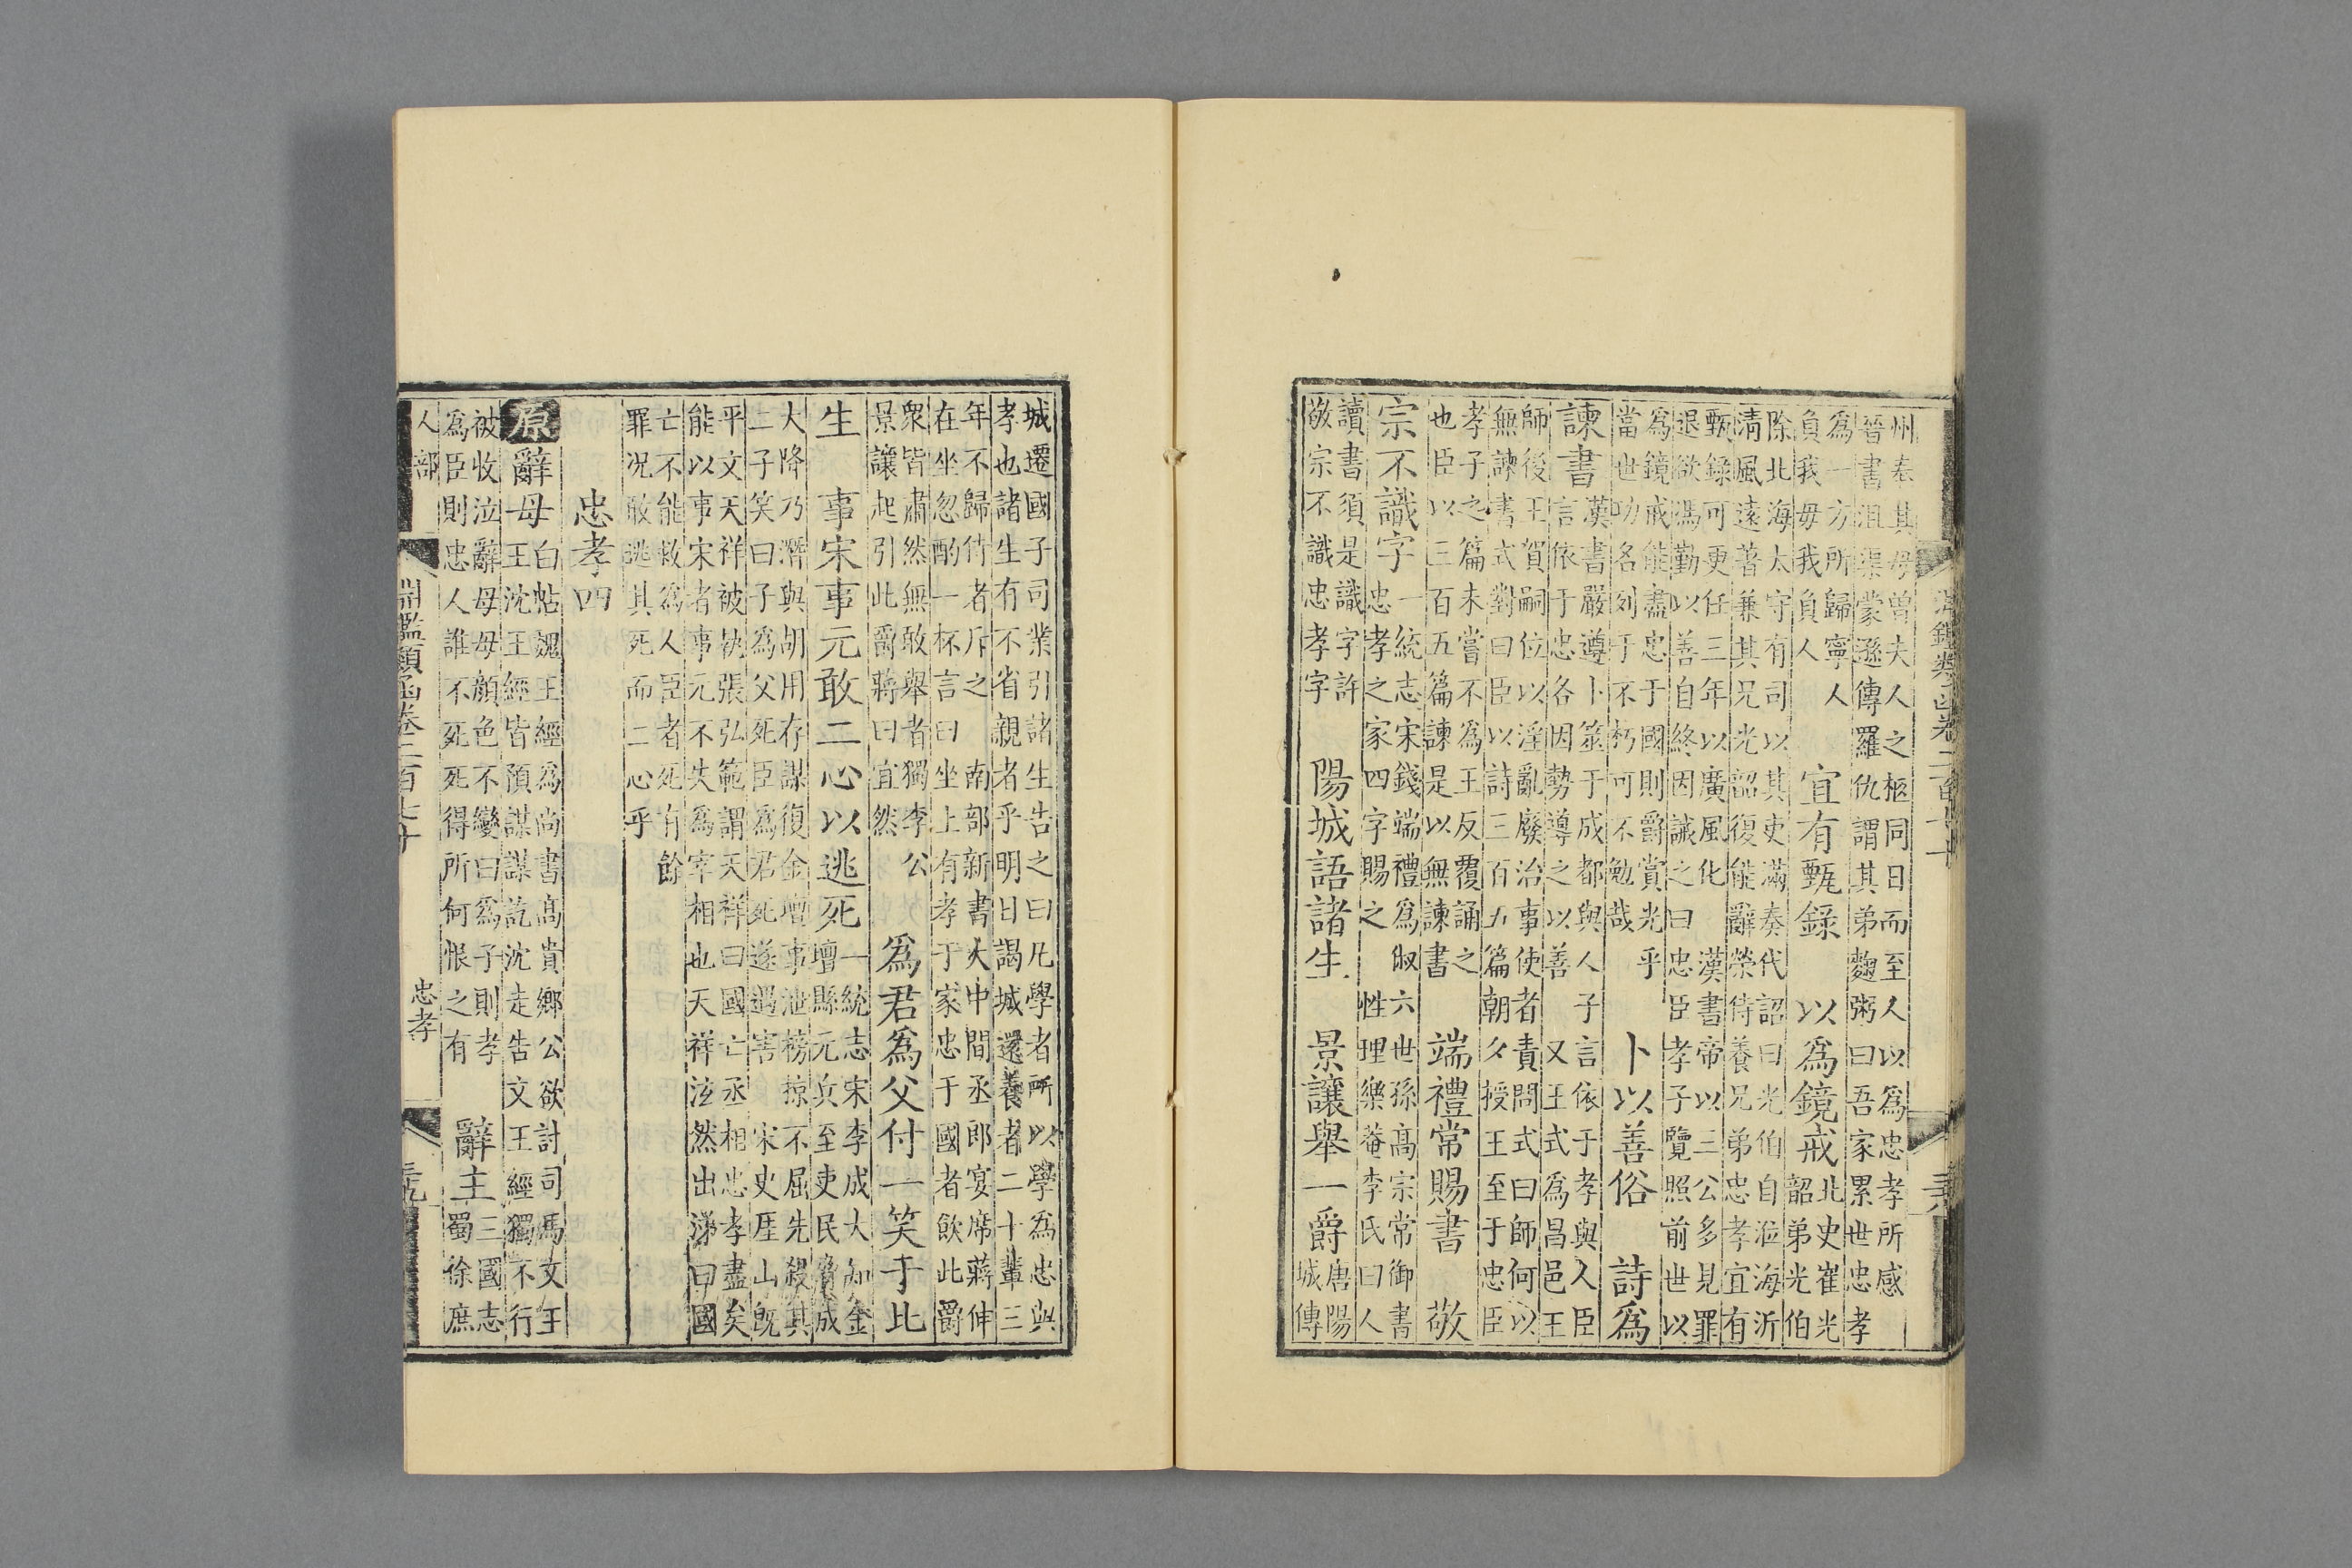 州奉其母曾夫人之柩同日而至人以為忠孝所感
晉書沮渠蒙遜傳羅仇謂其弟麴粥曰吾家累世忠孝
為一方所歸寧人
負我毋我負人
宜有甄錄　以為鏡戒
北史崔光
韶弟光伯
除北海太守有司以其吏滿奏代詔曰光伯自涖海沂
清風遠著兼其兄光韶復能辭榮侍養兄弟忠孝宜有
甄錄可更任三年以廣風化　漢書帝以三公多見罪
退欲馮勤以善自終因誡之曰忠臣孝子覽照前世以
為鏡戒能盡忠于國則爵賞光乎
當世功名列于不朽可不勉哉
卜以善俗　詩為
諫書
漢書嚴遵卜筮于成都與人子言依于孝與人臣
言依于忠各因勢導之以善　又王式為昌邑王
師後王賀嗣位以淫亂廢治事使者責問式曰師何以
無諫書式對曰臣以詩三百五篇朝夕授王至于忠臣
孝子之篇未嘗不為王反覆誦之
也臣以三百五篇諫是以無諫書
端禮常賜書　敬
宗不識字
一統志宋錢端禮為俶六世孫高宗常御書
忠孝之家四字賜之　性理樂菴李氏曰人
讀書須是識字許
敬宗不識忠孝字
陽城語諸生　景讓舉一爵
唐陽
城傳
城遷國子司業引諸生告之曰凡學者所以學為忠與
孝也諸生有不省親者乎明日謁城還養者二十輩三
年不歸侍者斥之　南部新書大中間丞郎宴席蔣伸
在坐忽酌一杯言曰坐上有孝于家忠于國者飲此爵
衆皆肅然無敢舉者獨李公
景讓起引此爵蔣曰宜然
為君為父付一笑于此
生　事宋事元敢二心以逃死
一統志宋李成大知金
壇縣元兵至吏民資成
大降乃潛與胡用存謀復金壇事泄榜掠不屈先殺其
二子笑曰子為父死臣為君死遂遇害　宋史厓山既
平文天祥被執張弘範謂天祥曰國亡丞相忠孝盡矣
能以事宋者事元不失為宰相也天祥泫然出涕曰國
亡不能救為人臣者死有餘
罪况敢逃其死而二心乎
忠孝四
原　辭母
白帖魏王經為尚書高貴鄉公欲討司馬文王
王沈王經皆預謀謀訖沈走告文王經獨不行
被收泣辭母母顏色不變曰為子則孝
為臣則忠人誰不死死得所何恨之有
辭主
三國志
蜀徐庶
人部
淵鑑類函卷二百七十
忠孝